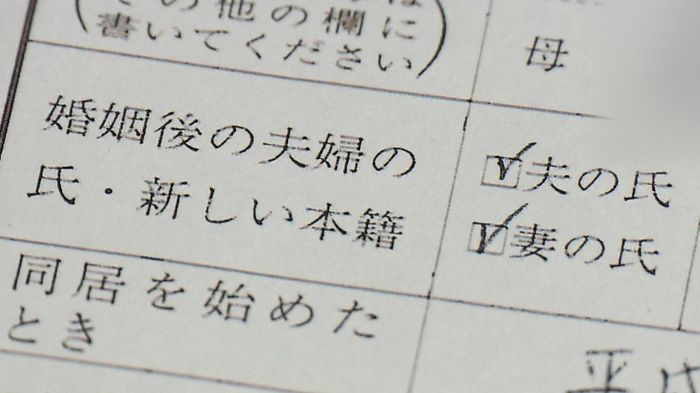 その他の欄に
書いてください
母
婚姻後の夫婦の
氏・新しい本籍
夫の氏
妻の氏
同居を始めた
とき
平成